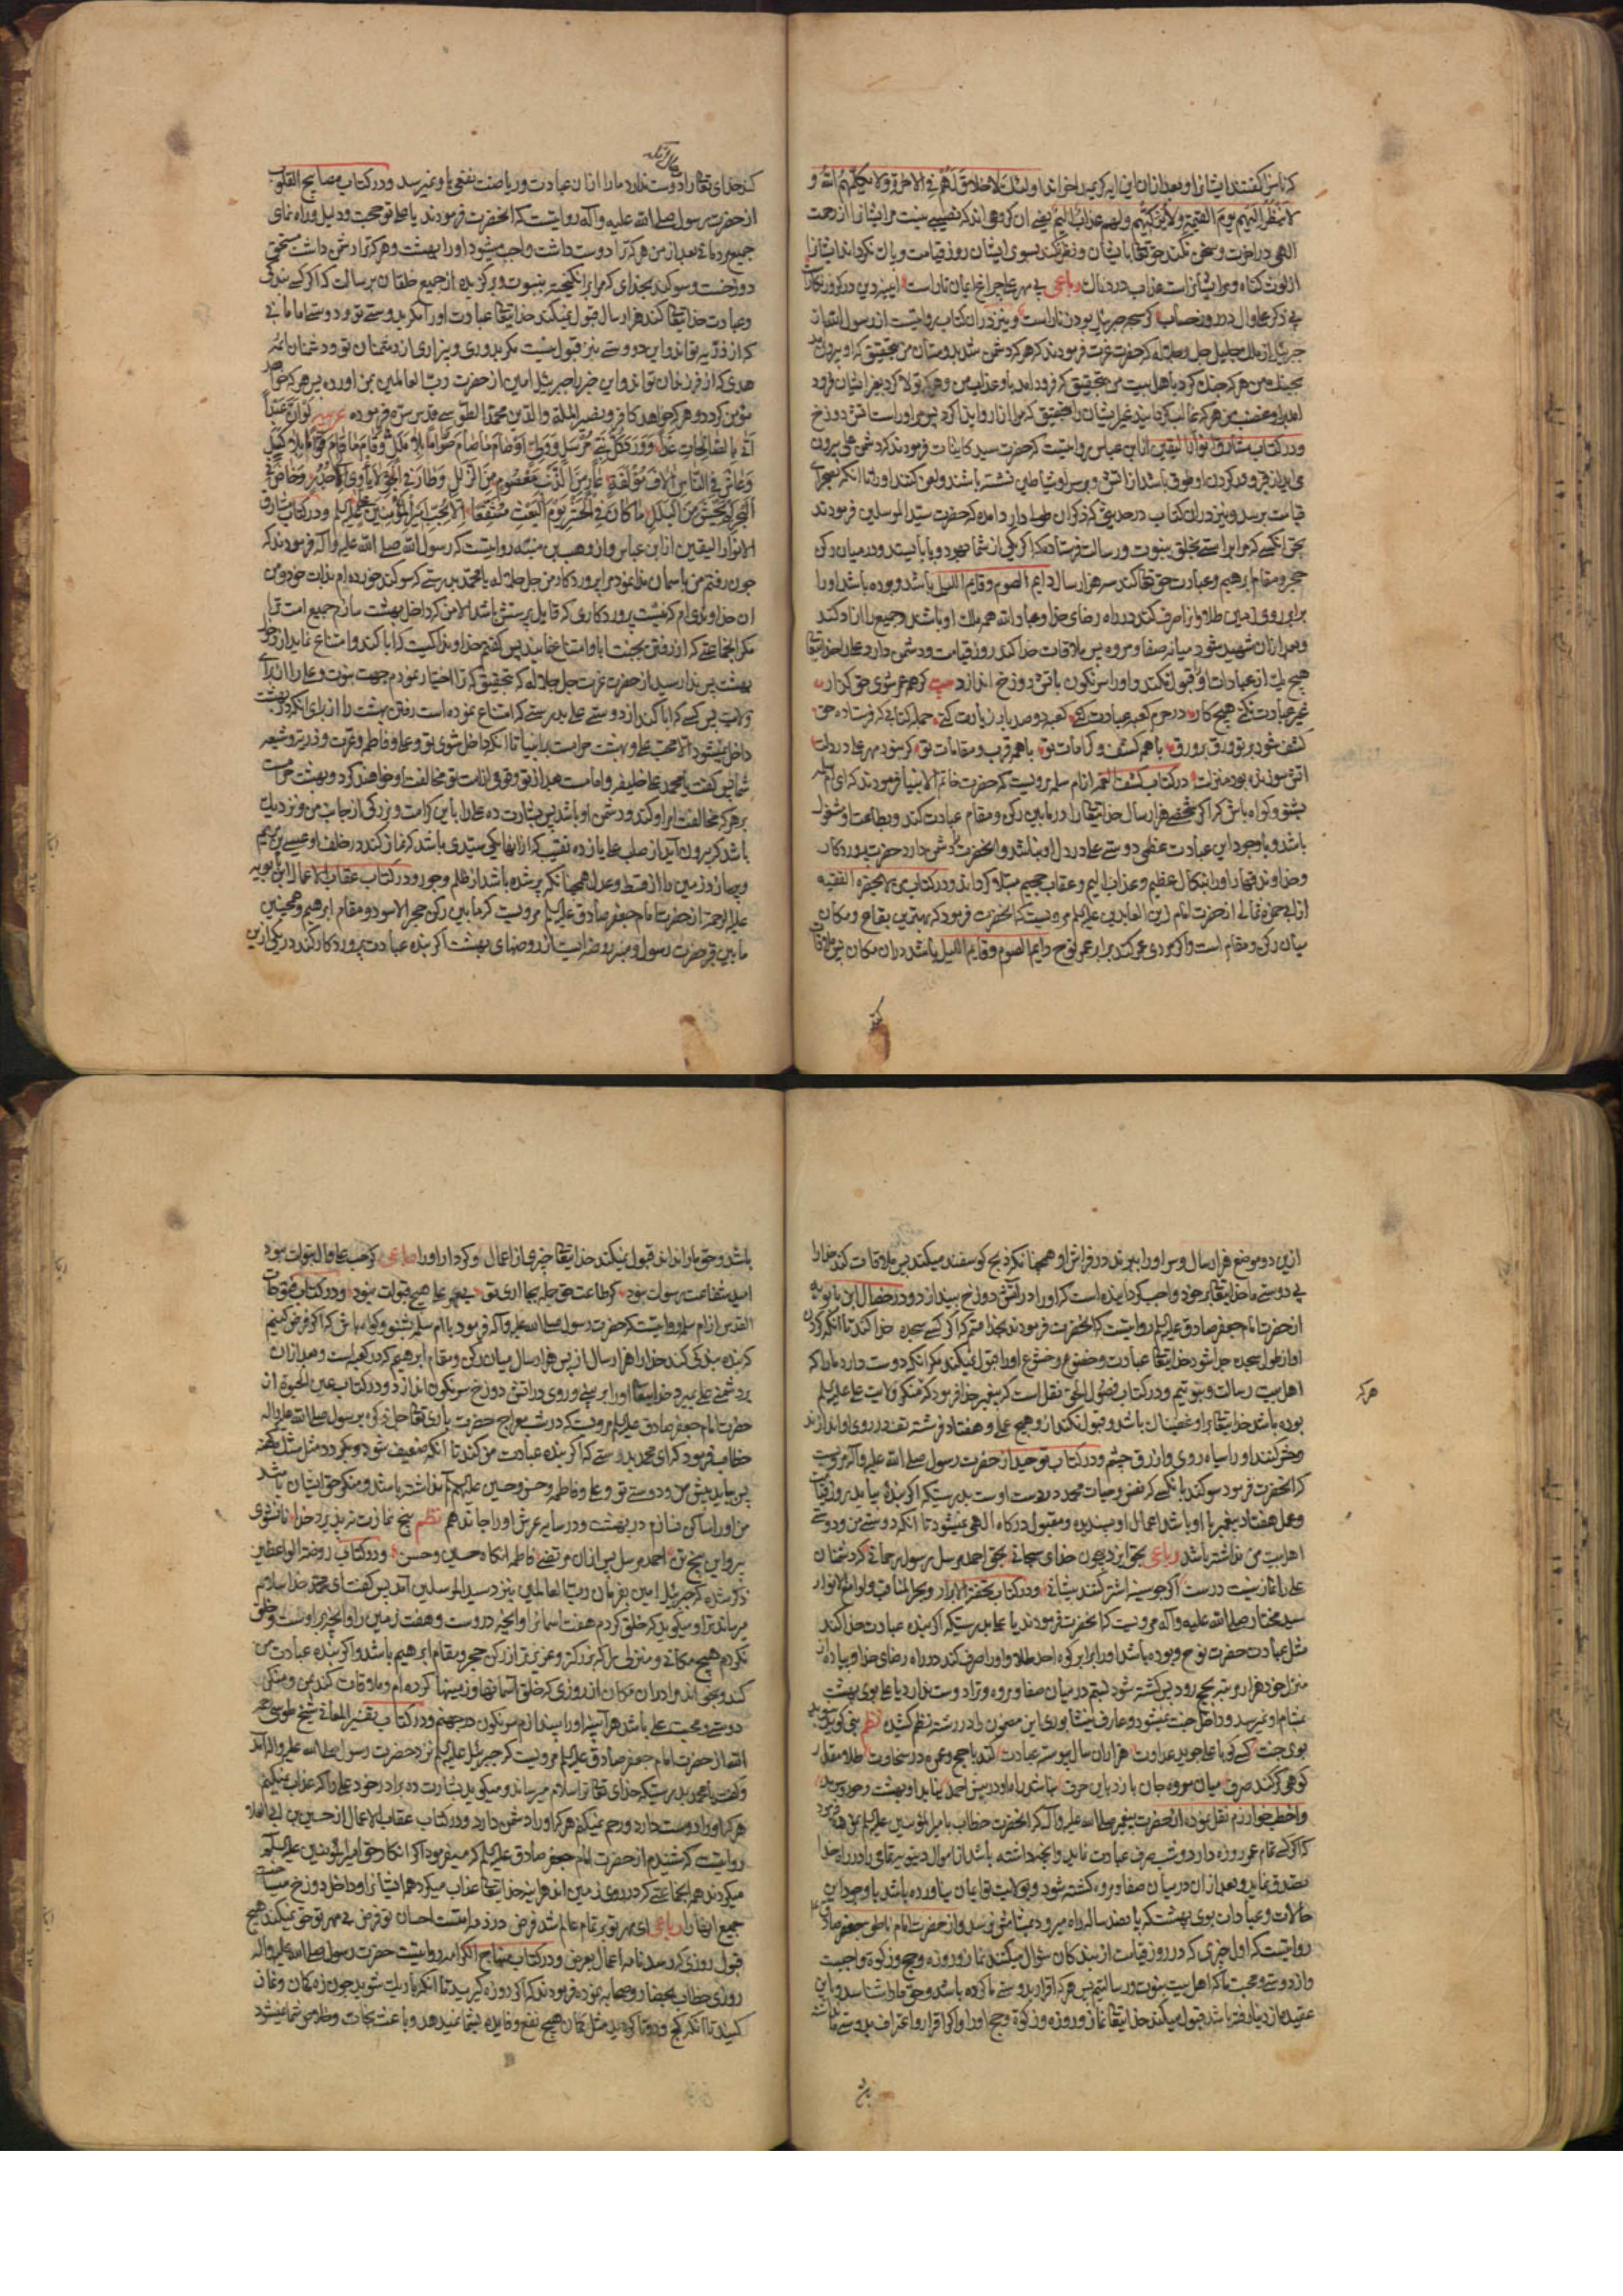 که ناسزا گفتند ایشانرا و بعد ازان این ایه کریمه را خواند اولئک لا خلاق لهم فی الاخرة ولا یکلمهم الله و
لا ینظر الیهم یوم القیمة ولا یزکیهم ولهم عذاب الیم یعنی ان گروهی اند که نصیبی نیست مر ایشانرا از رحمت
الهی در اخرت و سخن نکند حق تعالی با ایشان و نظر نکند بسوی ایشان روز قیامت و پاک نگرداند ایشانرا
از لوث گناه و مر ایشانراست عذاب دردناک رباعی بی مهر علی چراغ ایمان تاراست
بی ذکر علی و ال در روز حساب گر سبحه جبرئیل بود زناراست و نیز دران کتاب روایتست از رسول الله از
جبرئیل از ملک جلیل جل جلاله که حضرت عزت فرمودند که هر که دشمن شد بدوستان من بتحقیق که او بیرون آمد
بجنگ من هر که جنگ کرد با اهل بیت من بتحقیق که فرود امد باو عذاب من و هر که تولا کرد بغیر ایشان فرود
امد باو غضب من هر که غالب گردانید غیر ایشان را بتحقیق که مرا ازار و ایذا کرد پس مر او راست اتش دوزخ
و در کتاب مشارق انوار الیقین از ابن عباس روایتست که حضرت سید کاینات فرمودند که دشمن علی بیرون
می اید از قبر و در گردن او طوقی باشد از اتش و بر سر او شیاطین نشسته باشند و لعن کنند او را تا انکه بصحرای
قیامت برسد و نیز دران کتاب در حدیثی که ذکر ان طول دارد امده که حضرت سید المرسلین فرمودند
بحق انکسی که مرا براستی بخلق بنبوت و رسالت فرستاده که اگر یکی از شما مهر و یا بابیتد و در میان رکن
حجر و مقام ابرهیم و عبادت حق تعالی کند سه هزار سال دایم الصوم و قایم اللیل باشد و بوده باشد او را
برابر روی زمین طلا و انرا صرف کند در راه رضای خدا و عباد الله همه ملک او باشد و جمیع را ازاد کند
و بعد ازان شهید شود میانه صفا و مروه پس ملاقات خدا کند روز قیامت و دشمن دارد علی را خدایتعالی
هیچ یک از عبادات او قبول نکند و او را سرنگون باتش دوزخ اندازد بیت گر همه عمر سوی حق گذار
غیر عبادت نکنی هیچ کار در حرم کعبه عبادت کنی کعبه دو صد بار زیارت کنی جمله کتابی که فرستاده حق
کشف شود بر تو ورق بر ورق با همه کشف و کرامات تو با همه قرب و مقامات تو گر نبود مهر علی در دلت
اتش سوزان بود منزلت در کتاب کشف الغمه از ام سلمه مرویست که حضرت خاتم الانبیا فرمودند که ای ام سلمه
بشنو و گواه باش که اگر شخصی هزار سال خدایتعالی را در ما بین رکن و مقام عبادت کند و بطاعت او مشغول
باشد و با وجود این عبادت عظمی دوستی علی در دل او نباشد و انحضرت را دشمن دارد حضرت پروردگار
و خداوند قهار او را بنکال عظیم و عذاب الیم و عقاب جحیم مبتلا گرداند و در کتاب من لا یحضره الفقیه
از ابی حمزه ثمالی از حضرت امام زین العابدین علیه السلم مرویست که انحضرت فرمود که بهترین بقاع و مکان
میان رکن و مقام است و اگر مردی عمر کند برابر عمر نوح دایم الصوم و قایم اللیل باشد دران مکان پس ملاقات
کند
حال آنکه
کند خدای تعالی را و دوست ندارد ما را از ان عبادت و ریاضت نفعی باو نمیرسد و در کتاب مصابیح القلوب
از حضرت رسول صلی الله علیه و آله روایتست که انحضرت فرمودند یا علی تو حجت و دلیل و راه نمای
جمیع مردمانی بعد از من هر که ترا دوست داشت واجب میشود او را بهشت و هر که ترا دشمن داشت مستحق
دوزخست و سوگند بخدای که مرا برانگیخته به نبوت و برگزیده از جمیع خلقان برسالت که اگر کسی بندگی
و عبادت خدایتعالی کند هزار سال قبول نمیکند خدایتعالی عبادت او را مگر بدوستی تو و دوستی امامانی
که از ذریه تو اند و این دوستی نیز قبول نیست مگر بدوری و بیزاری از دشمنان تو و دشمنان ائمه
هدی که از فرزندان تو اند و این خبر را جبرئیل امین از حضرت رب العالمین بمن اورده پس هر که خواهد
مؤمن گردد و هر که خواهد کافر و نصیر الملة والدین محمد الطوسی قدس سره فرموده عربیه لو ان عبدا
اتی بالصالحات غدا وود کل نبی مرسل وولی وصام ما صام صواما بلا ملل وقام ما قام قواما بلا کسل
وعاش فی الناس الافا مؤلفة عار من الذنب معصوم من الزلل وطار فی الجو لا یاوی الی احد وغاص فی
البحر لا یخشی من البلل ما کان فی الحشر یوم البعث منتفعا الا بحب امیر المؤمنین علی علیه السلم و در کتاب مشارق
الانوار الیقین از ابن عباس و از وهب بن منبه روایتست که رسول الله صلی الله علیه و آله فرمودند که
چون رفتم من باسمان ندا نمود مرا پروردگار من جل جلاله که یا محمد بدرستی که سوگند خورده ام بذات خود و من
ان خداوندی ام که نیست پروردگاری که قابل پرستش باشد الا من که داخل بهشت سازم جمیع امت ترا
مگر انجماعتی که از رفتن بجنت ابا و امتناع نمایند پس گفتم خداوندا کیست که ابا کند و امتناع نماید از دخول
بهشت پس ندا رسید از حضرت عزت جل جلاله که بتحقیق که ترا اختیار نمودم جهت نبوت و علی را از برای
ولایت پس کسی که ابا کند از دوستی علی بدرستی که امتناع نموده است رفتن بهشت را از برای انکه در بهشت
داخل نمیشود الا محب علی و بهشت حرامست بر انبیا تا انکه داخل شوی تو و علی و فاطمه و عترت و ذریه تو و شیعه
شما پس گفت یا محمد علی خلیفه و امامست بعد از تو و قومی از امت تو مخالفت او خواهند کرد و بهشت حرامست
بر هر که مخالفت امر او کند و دشمن او باشد پس بشارت ده علی را باین کرامت و بزرگی از جانب من و نزدیک
باشد که بیرون آید از صلب علی یازده نقیب که از انها یکی سیدی باشد که نماز کند در خلف او عیسی بن مریم
و پر سازد زمین را از قسط و عدل همچنانکه پر شده باشد از ظلم و جور و در کتاب عقاب الاعمال ابن بابویه
علیه الرحمة از حضرت امام جعفر صادق علیه السلم مرویست که ما بین رکن حجر الاسود و مقام ابرهیم و همچنین
ما بین قبر حضرت رسول و منبر روضه ایست از روضهای بهشت اگر بنده عبادت پروردگار کند در یکی ازین
ازین دو موضع هزار سال و سر او را ببرند در فراش او همچنانکه ذبح گوسفند میکنند پس ملاقات کند خدا را
بی دوستی ما خدایتعالی بر خود واجب گردانیده است که او را در آتش دوزخ بیندازد و در خصال ابن بابویه
از حضرت امام جعفر صادق علیه السلم روایتست که انحضرت فرمودند بخدا قسم که اگر کسی سجده خدا کند تا انکه گردن
او از طول سجده جدا شود خدایتعالی عبادت و خضوع و خشوع او را قبول نمیکند مگر انکه دوست دارد ما را که
اهل بیت رسالت و نبوتیم و در کتاب فصول الحق نقل است که پیغمبر خدا فرمود که هر که منکر ولایت علی علیه السلم
هر که
بوده باشد خدایتعالی بر او غضبناک باشد و قبول نکند ازو هیچ عملی و هفتاد فرشته تف در روی او اندازند
و حشر کنند او را سیاه روی و ازرق چشم و در کتاب توحید از حضرت رسول صلی الله علیه و آله مرویست
که انحضرت فرمود سوگند بانکسی که نفس و حیات محمد در دست اوست بدرستیکه اگر بنده بیاید بروز قیامت
و عمل هفتاد پیغمبر با او باشد اعمال او پسندیده و مقبول درگاه الهی نمیشود تا انکه دوستی من و دوستی
اهل بیت من نداشته باشد رباعی بحق ایزد بیچون خدای سبحانی بحق احمد مرسل رسول رحمانی که دشمنان
علی را نماز نیست درست اگر چه سینه اشتر کنند پیشانی و در کتاب تحفة الابرار و بحر المناقب و لوامع الانوار
سید مختار صلی الله علیه و آله مرویست که انحضرت فرمودند یا علی بدرستیکه اگر بنده عبادت خدا کند
مثل عبادت حضرت نوح و بوده باشد او را برابر کوه احد طلا و او را صرف کند در راه رضای خدا و پیاده از
منزل خود هزار مرتبه بحج رود پس کشته شود بستم در میان صفا و مروه و ترا دوست ندارد یا علی بوی بهشت
بمشام او نمیرسد و داخل جنت نمیشود و عارف نیشابوری این مضمون را در رشته نظم کشیده نظم
بوی جنت کسی کو با علی جوید عداوت هزاران سال پیوسته عبادت کند با حج و عمره در سخاوت طلا مقدار
کوهی گر کند صرف میان مروه جان بازد باین حرف نباشد راه او در پیش احمد نیابد او بهشت
و اخطب خوارزم نقل نموده از حضرت پیغمبر صلی الله علیه و آله که انحضرت خطاب بامیر المؤمنین علیه السلم نموده فرمود
که اگر کسی تمام عمر روزه دارد و شب صرف عبادت نماید و انچه داشته باشد از اموال دنیویه تمامی را در راه خدا
تصدق نماید و بعد ازان در میان صفا و مروه کشته شود و بولایت تو ایمان نیاورده باشد با وجود این
حالات و عبادات بوی بهشت که پانصد ساله راه میرود بمشامش نرسد و از حضرت امام ناطق جعفر صادق علیه
روایتست که اول چیزی که در روز قیامت از بندگان سؤال میکنند نماز و روزه و حج و زکوة واجبست
و از دوستی و محبت ما که اهل بیت نبوت و رسالتیم پس هر که اقرار بدوستی ما کرده باشد و حق ما را شناسد و باین
عقیده از دنیا رفته باشد قبول میکند خدایتعالی نماز و روزه و زکوة و حج او را و اگر اقرار و اعتراف بدوستی ما نداشته
باشد و حق ما را نداند قبول نمیکند خدایتعالی چیزی از اعمال و کردار او را رباعی گر حب علی و ال بتولت نبود
امید شفاعت ز رسولت نبود گر طاعت حق جمله بجا اری تو بی مهر علی هیچ قبولت نبود و در کتاب
القدس از ام سلمه روایتست که حضرت رسول صلی الله علیه و آله فرمود یا ام سلمه بشنو و گواه باش که اگر فرض کنیم
که بنده بندگی کند خدا را هزار سال از پس هزار سال میان رکن و مقام ابرهیم که در کعبه است و بعد ازان
بر دشمنی علی بمیرد خدایتعالی او را بر بینی و روی در اتش دوزخ سرنگون اندازد و در کتاب عین الحیوة از
حضرت امام جعفر صادق علیه السلم مرویست که در شب معراج حضرت باری تعالی جل ذکره برسول صلی الله علیه و آله
خطاب فرمود که ای محمد بدرستی که اگر بنده عبادت من کند تا انکه ضعیف شود و بگردد مثل مشک کهنه
پس بیاید پیش من و دوستی تو و علی و فاطمه و حسن و حسین علیهم السلم نداشته باشد و منکر حق ایشان باشد
من او را ساکن نسازم در بهشت و در سایه عرش او را جا ندهم نظم پنج نمازت نپذیرد خدا تا نشوی
پیرو این پنج تن احمد مرسل پس ازان مرتضی فاطمه انگاه حسین و حسن و در کتاب روضة الواعظین
ذکر شده که جبرئیل امین بفرمان رب العالمین بنزد سید المرسلین آمد پس گفت ای محمد خدا سلام
میرساند ترا و میگوید که خلق کردم هفت اسمانرا و انچه دروست و هفت زمین را و انچه بر اوست و خلق
نکردم هیچ مکانی و منزلی را که بزرگتر و عزیزتر از رکن حجر و مقام ابرهیم باشد و اگر بنده عبادت من
کند و بخواند مرا دران مکان از روزی که خلق آسمانها و زمینها کرده ام و ملاقات کند بمن و منکر
دوستی و محبت علی باشد هر آینه او را بیندازم سرنگون در جهنم و در کتاب تفسیر المعانی شیخ طوسی رحمه
الله از حضرت امام جعفر صادق علیه السلم مرویست که جبرئیل علیه السلم نزد حضرت رسول صلی الله علیه و اله آمد
و گفت یا محمد بدرستیکه خدای تعالی ترا سلام میرساند و میگوید بشارت ده برادر خود علی را که عذاب نمیکنم
هر که او را دوست دارد و رحم نمیکنم هر که او را دشمن دارد و در کتاب عقاب الاعمال از حسین بن ابی العلا
روایتست که شنیدم از حضرت امام جعفر صادق علیه السلم که میفرمود اگر انکار حق امیر المؤمنین علیه السلم
میکردند همه انجماعتی که در روی زمین اند هر اینه خدایتعالی عذاب میکرد همه ایشانرا و داخل دوزخ میساخت
جمیع انها را رباعی ای مهر تو بر تمام عالم شده فرض در ذمه امتست احسان تو قرض بی مهر تو حق نمیکند هیچ
قبول روزی که رسد نامه اعمال بعرض و در کتاب منهاج الکرامه روایتست حضرت رسول صلی الله علیه و اله
روزی خطاب بحضار و صحابه نموده فرمودند که اگر روزه گیرید تا انکه باریک شوید چون زه کمان و نماز
کنید تا انکه کج و دوتا گردید مثل کمان هیچ نفع و فایده بشما نمیدهد و باعث نجات و خلاص شما نمیشود